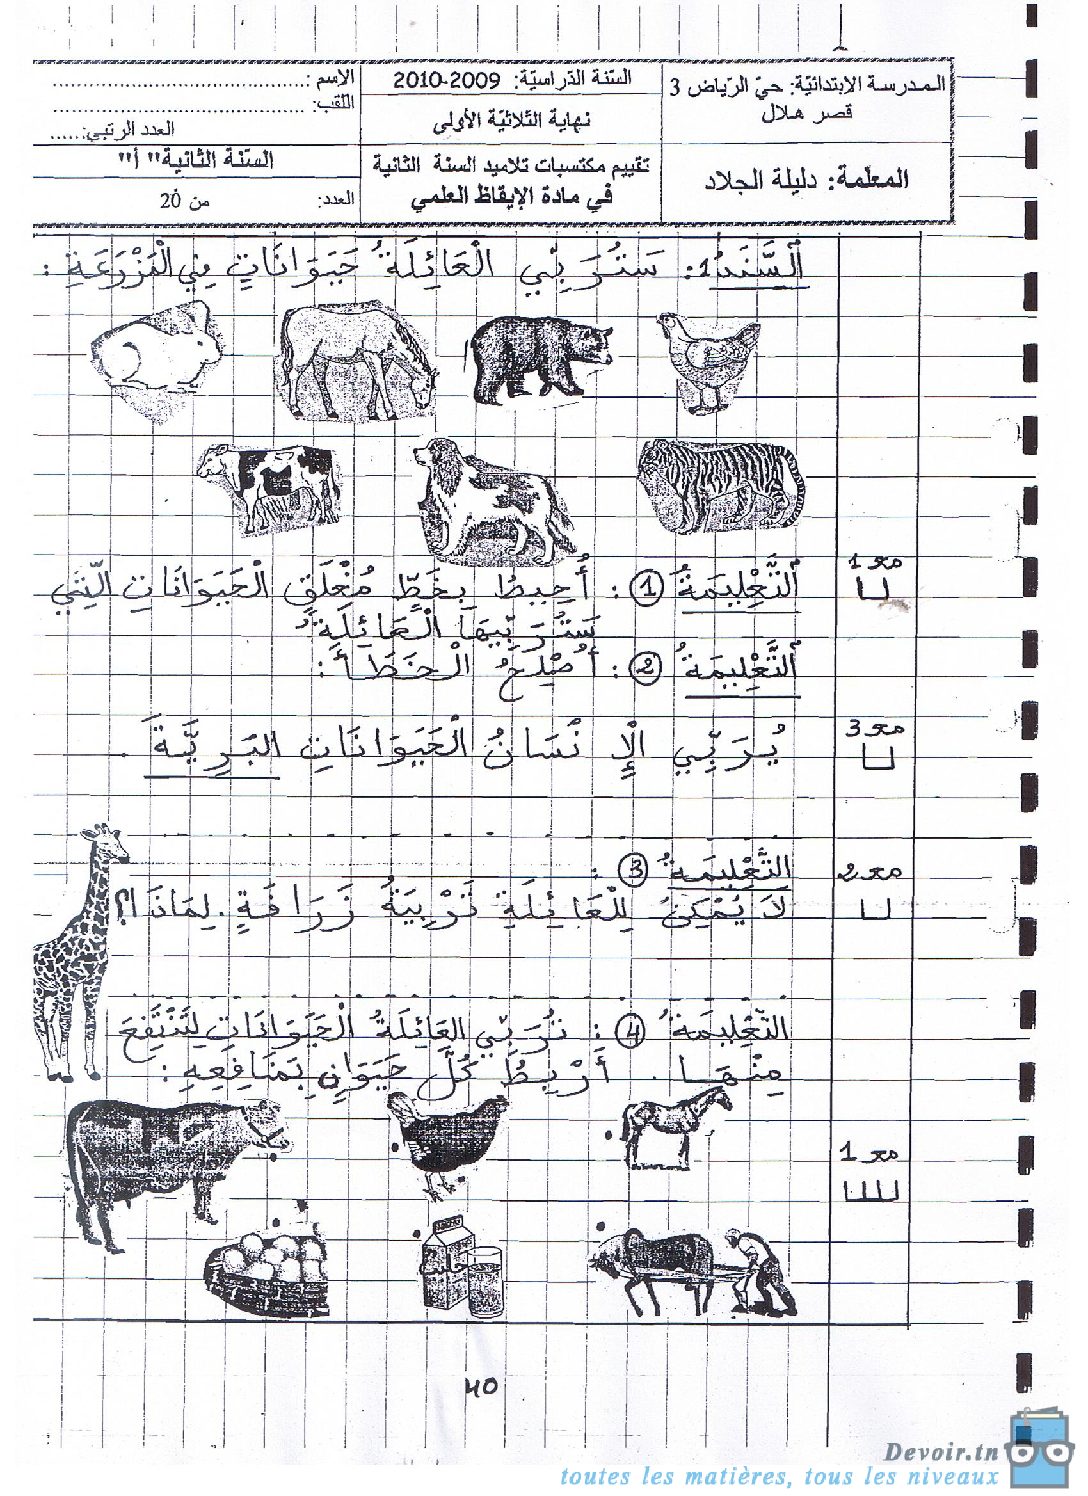 المدرسة الإبتدائيّة: حيّ الرّياض 3
قصر هلال
المعلّمة: دليلة الجلاد
السّنة الدّراسيّة: 2009-2010
نهاية الثّلاثيّة الأولى
تقييم مكتسبات تلاميذ السنة الثانية
في مادة الإيقاظ العلمي
الإسم : ......................................
اللقب: ......................................
العدد الرتبي:.....
السّنة الثانية" أ"
العدد: من 20
اَلسَّنَدُ 1: سَتُرَبِّي الْعَائِلَةُ حَيَوَانَاتٍ فِي الْمَزْرَعَةِ :
مع 1
اَلتَّعْلِيمَةُ 1 : أُحِيطُ بِخَطٍّ مُغْلَقٍ الْحَيَوَانَاتِ الَّتِي
سَتُرَبِّيهَا الْعَائِلَةُ
اَلتَّعْلِيمَةُ 2 : أُصْلِحُ الْخَطَأَ :
مع 3
يُرَبِّي الْإِنْسَانُ الْحَيَوَانَاتِ البَرِيَّةَ .
مع 2
التَّعْلِيمَةُ 3 :
لَا يُمْكِنُ لِلْعَائِلَةِ تَرْبِيَةُ زَرَافَةٍ . لِمَاذَا ؟
التَّعْلِيمَةُ 4 : تُرَبِّي العَائِلَةُ الْحَيَوَانَاتِ لِتَنْتَفِعَ
مِنْهَا . أَرْبِطُ كُلَّ حَيَوَانٍ بِمَنَافِعِهِ :
مع 1
حليب
40
Devoir.tn
toutes les matières, tous les niveaux